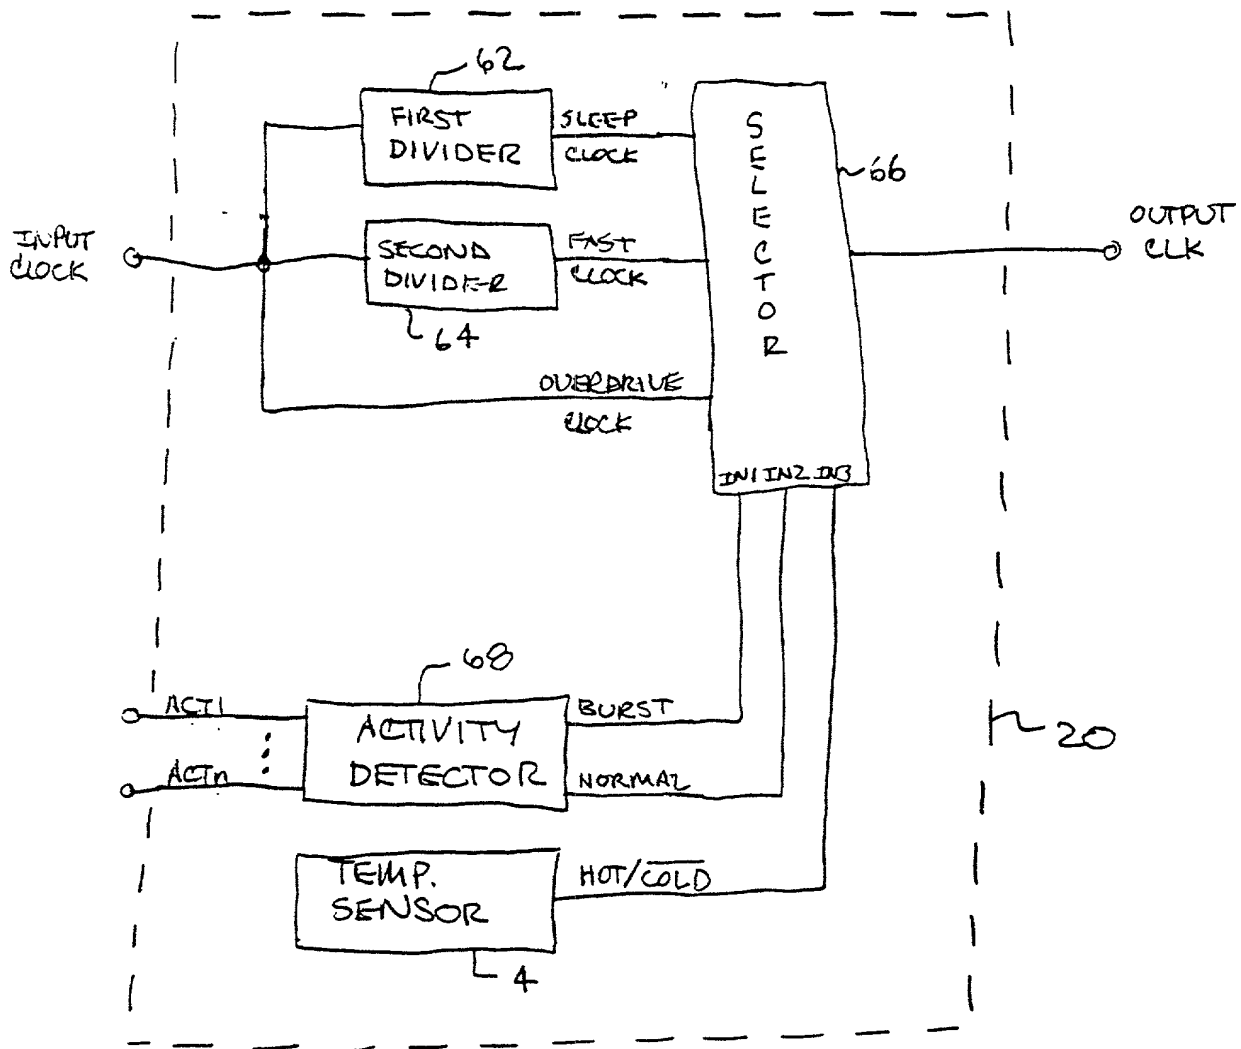 62
FIRST
DIVIDER
SLEEP
CLOCK
SELECTOR
66
INPUT
CLOCK
SECOND
DIVIDER
FAST
CLOCK
64
OUTPUT
CLK
OVERDRIVE
CLOCK
IN1 IN2 IN3
68
ACT1
ACTn
ACTIVITY
DETECTOR
BURST
NORMAL
20
TEMP.
SENSOR
HOT/C̅O̅L̅D̅
4